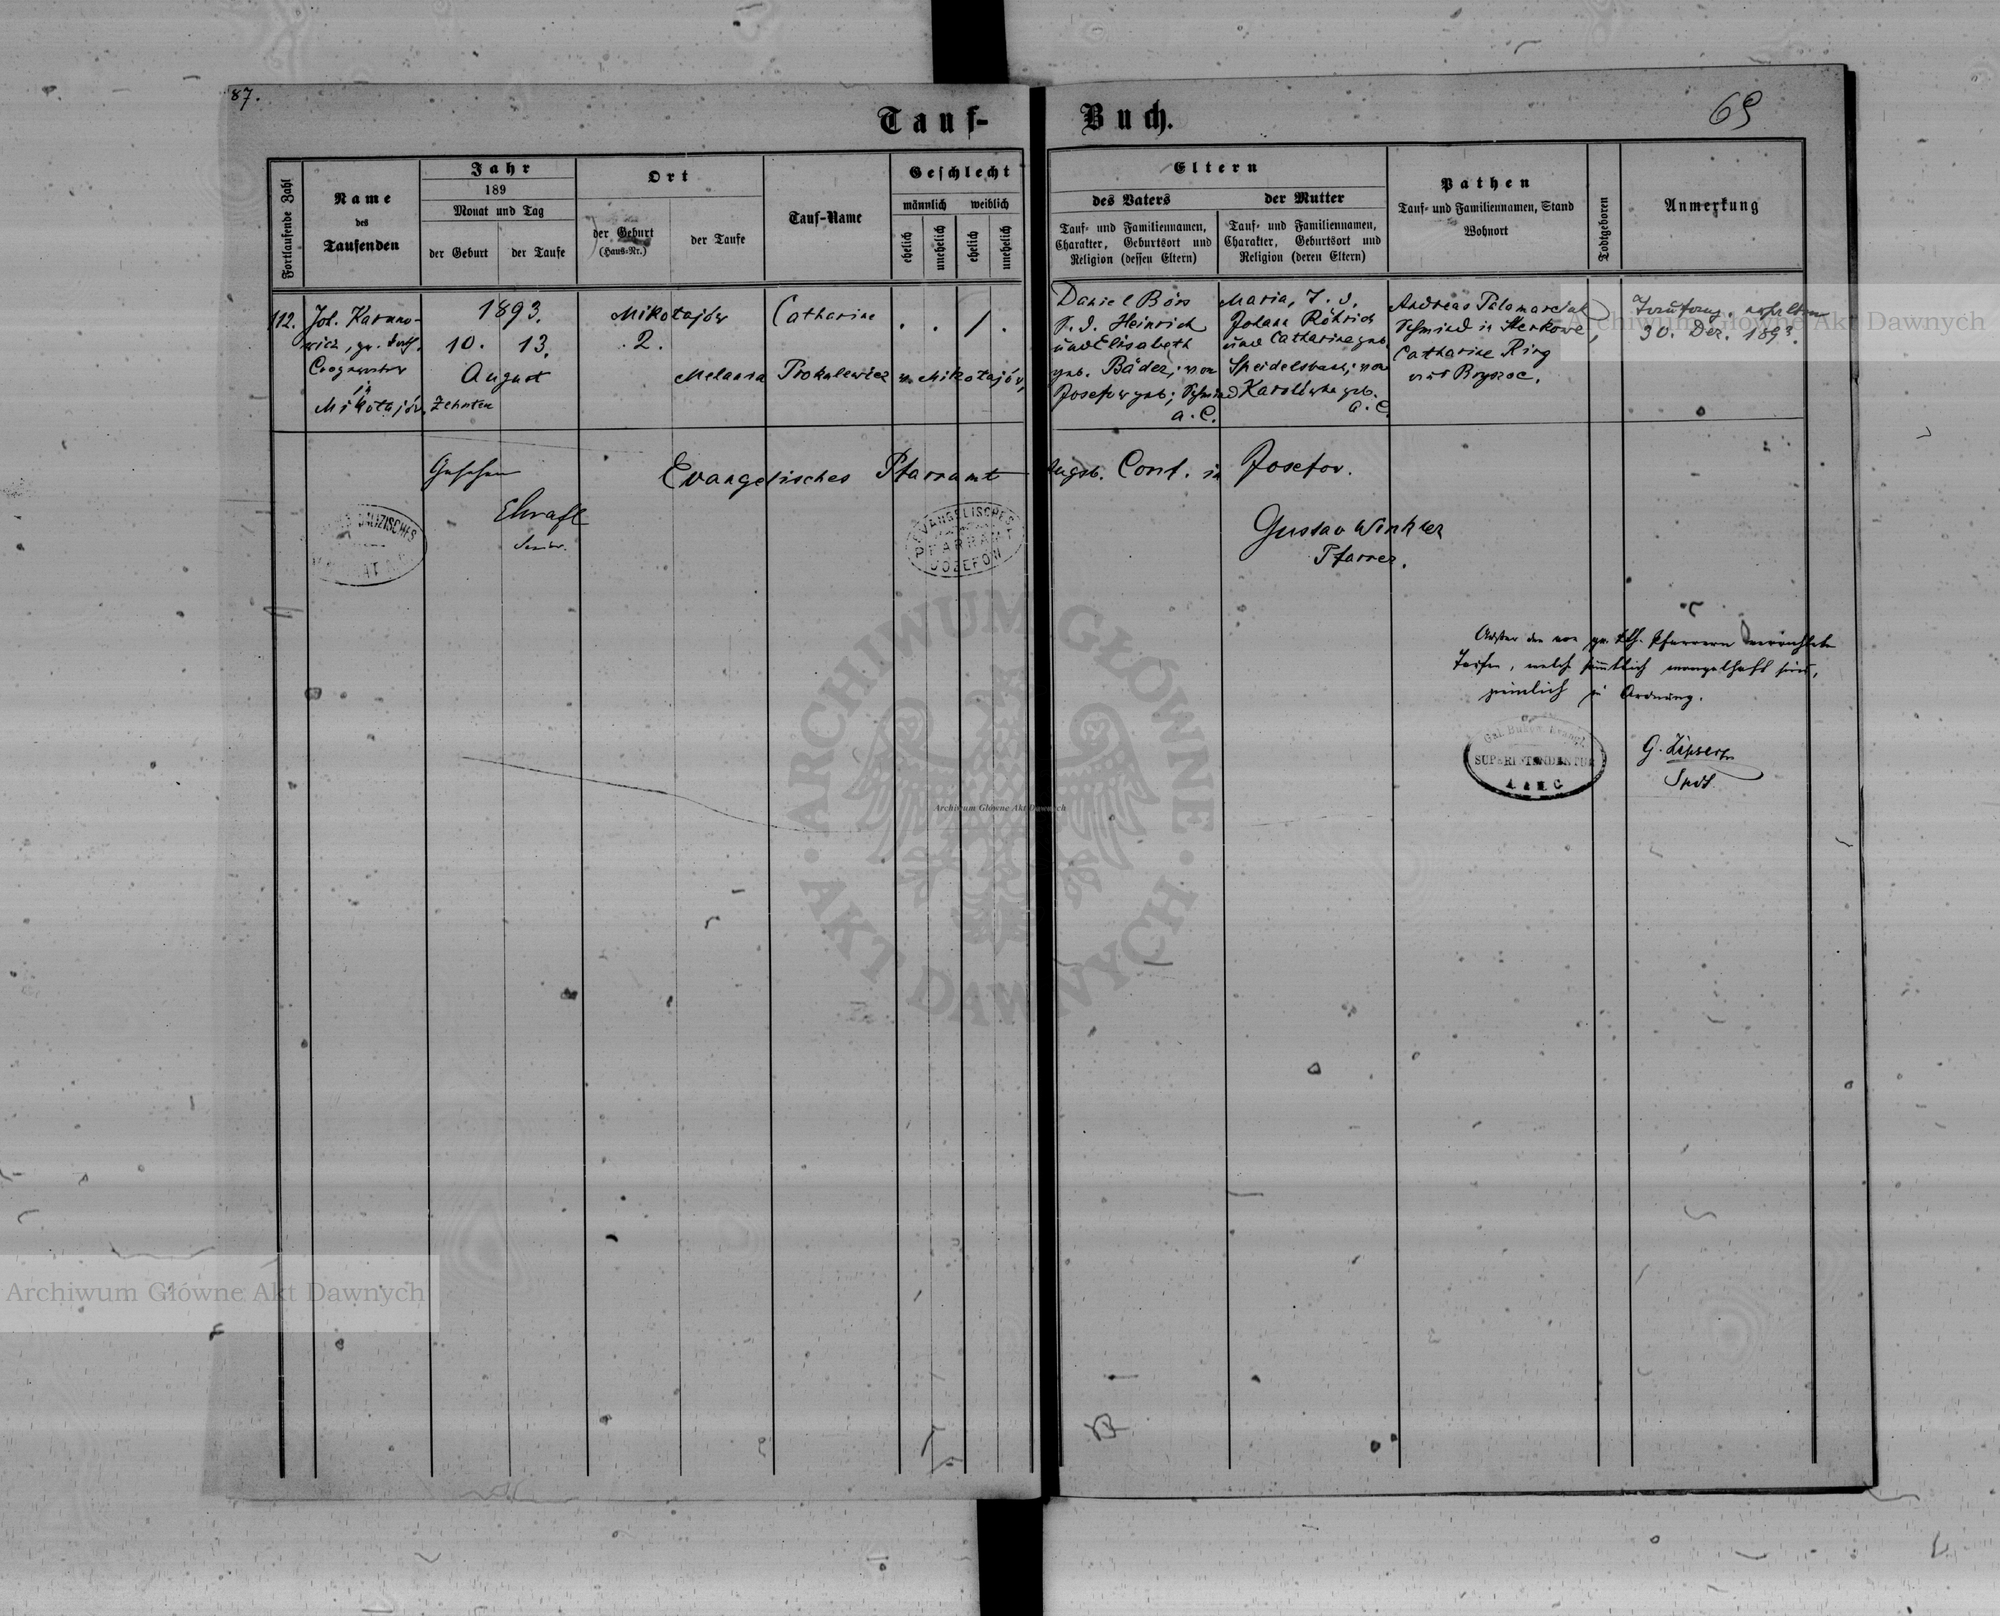 87.
Tauf-Buch.
69
Fortlaufende Zahl
Name
des
Taufenden
Jahr
189
Monat und Tag
der Geburt
der Taufe
Ort
der Geburt
(Haus-Nr.)
der Taufe
Tauf-Name
Geschlecht
männlich
weiblich
ehelich
unehelich
ehelich
unehelich
Eltern
des Vaters
Tauf- und Familiennamen,
Charakter, Geburtsort und
Religion (dessen Eltern)
der Mutter
Tauf- und Familiennamen,
Charakter, Geburtsort und
Religion (deren Eltern)
Pathen
Tauf- und Familiennamen, Stand
Wohnort
Todtgeboren
Anmerkung
112.
Joh. Karuno-
wicz, gr. kath.
Cooperator
in
Mikołajów,
1893.
10. 13.
August
Zehnten
Mikołajów
2.
Catharine
. . / .
Melania Prokulewicz in Mikołajów,
Daniel Börs
S. d. Heinrich
und Elisabeth
geb. Bäder; von
Josefow geb; Schmied
A. C.
Maria, T. d.
Johann Röhrich
und Catharina geb.
Speidelsbach; von
Karolówka geb.
A. C.
Andreas Palamarczuk
Schmied in Sterkowce,
Catharine Ring
aus Bryszcze.
erhalten
30. Dez. 1893.
Gesehen
Senior.
Evangelisches Pfarramt Augsb. Conf. in Josefow.
EVANGELISCHES
PFARRAMT
JOZEFOW
Gustav Winkler
Pfarrer.
Außer den von gr. kth. Pfarrern verrichteten
Taufen, welche sämmtlich mangelhaft sind,
ziemlich in Ordnung.
Gal. Bukow. Evangl.
SUPERINTENDENTUR
A. & H. C.
G. Zipser
Supdt.
Archiwum Główne Akt Dawnych
ARCHIWUM GŁÓWNE
AKT DAWNYCH
Archiwum Główne Akt Dawnych
Archiwum Główne Akt Dawnych